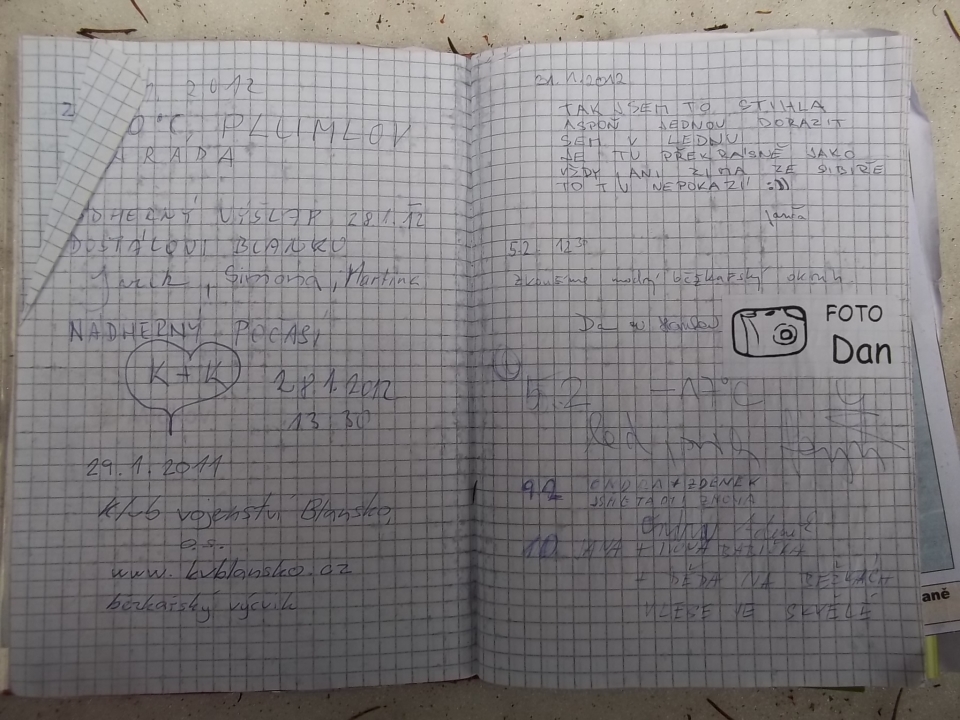 2012
0°C, PLUMLOV
PARÁDA
NÁDHERNÝ VÝŠLAP 28.1.12
DOSTÁLOVI BLANKO
Simona, Martina
NÁDHERNÝ POČASÍ
K + K 28.1.2012
13.30
29.1.2011
Klub vojenství Blansko,
o.s.
www.kvblansko.cz
běžkařský výcvik
31.1.2012
TAK JSEM TO STIHLA
ASPOŇ JEDNOU DORAZIT
SEM V LEDNU
JE TU PŘEKRÁSNĚ JAKO
VŽDY ANI ZIMA ZE SIBIŘE
TO TU NEPOKAZÍ! :=))
Janča
5.2. 12 30
zkoušíme modrý běžkařský okruh
FOTO
Dan
5.2 -17°C
led,
9.2 + ZDENEK
10.
+ DĚDA NA BĚŽKÁCH
V LESE JE SKVĚLE
aně